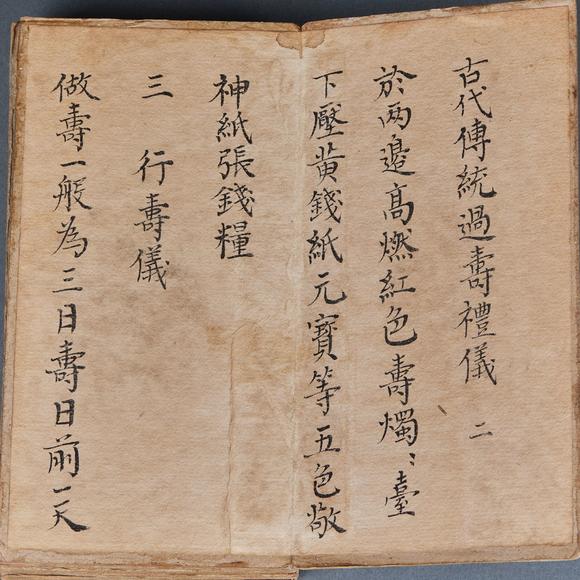 古代傳統過壽禮儀 二
於两邊髙燃紅色壽燭〻臺
下壓黄錢紙元寶等五色敬
神紙張錢糧
三 行壽儀
做壽一般為三日壽日前一天